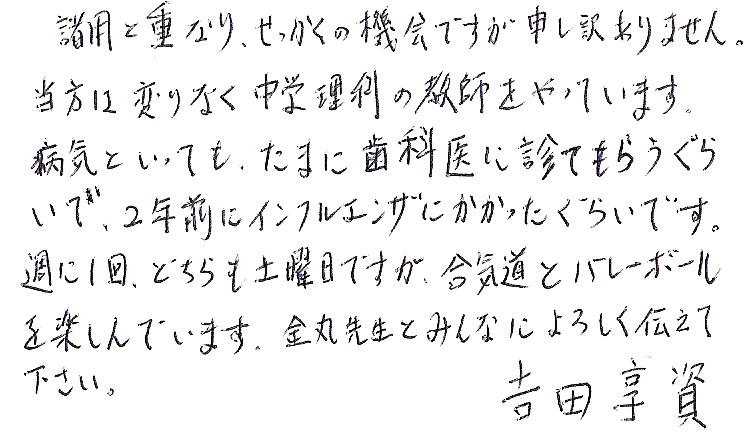 諸用と重なり、せっかくの機会ですが申し訳ありません。
当方は変りなく中学理科の教師をやっています。
病気といっても、たまに歯科医に診てもらうぐら
いで、2年前にインフルエンザにかかったぐらいです。
週に1回、どちらも土曜日ですが、合気道とバレーボール
を楽しんでいます。金丸先生とみんなによろしく伝えて
下さい。
吉田享資